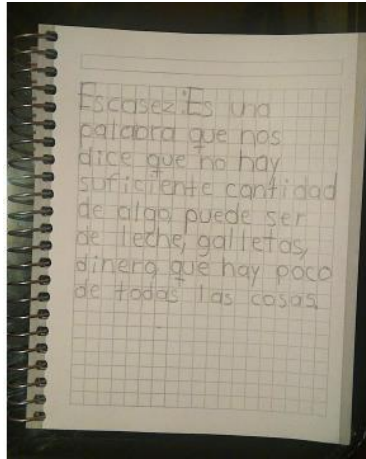 Escasez: Es una
palabra que nos
dice que no hay
suficiente cantidad
de algo, puede ser
de leche, galletas,
dinero, que hay poco
de todas las cosas.